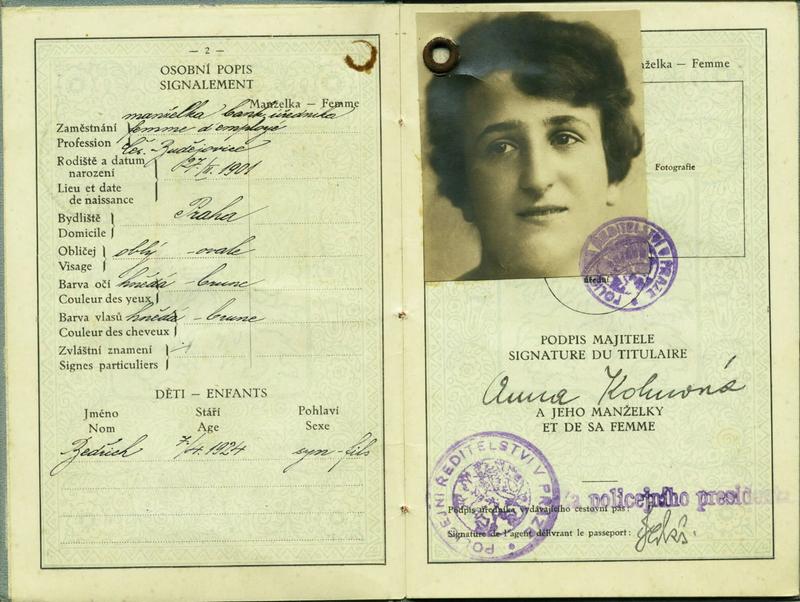 — 2 —
OSOBNÍ POPIS
SIGNALEMENT
Manželka — Femme
Zaměstnání
Profession
manželka bank. úředníka
femme d'employé
Rodiště a datum
narození
Lieu et date
de naissance
Čes. Budějovice
27/II. 1901
Bydliště
Domicile
Praha
Obličej
Visage
oblý - ovale
Barva očí
Couleur des yeux
hnědá - brune
Barva vlasů
Couleur des cheveux
hnědá - brune
Zvláštní znamení
Signes particuliers
DĚTI — ENFANTS
Jméno Stáří Pohlaví
Nom Age Sexe
Bedřich 7/4. 1924 syn - fils
Manželka — Femme
Fotografie
úřední
POLICEJNÍ ŘEDITELSTVÍ V PRAZE
PODPIS MAJITELE
SIGNATURE DU TITULAIRE
Anna Kohnová
A JEHO MANŽELKY
ET DE SA FEMME
POLICEJNÍ ŘEDITELSTVÍ V PRAZE
policejního presidenta
Podpis úředníka vydávajícího cestovní pas:
Signature de l'agent délivrant le passeport: